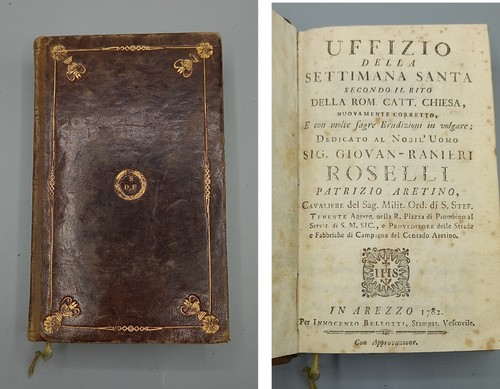 S
D.P
UFFIZIO
DELLA
SETTIMANA SANTA
SECONDO IL RITO
DELLA ROM. CATT. CHIESA,
NUOVAMENTE CORRETTO,
E con molte sagre Erudizioni in volgare;
DEDICATO AL NOBIL'UOMO
SIG. GIOVAN-RANIERI
ROSELLI
PATRIZIO ARETINO,
CAVALIERE del Sag. Milit. Ord. di S. STEF.
TENENTE Aggreg. nella R. Piazza di Piombino al
Serviz. di S. M. SIC., e PROVEDITORE delle Strade
e Fabbriche di Campagna del Contado Aretino.
IHS
IN AREZZO 1782.
Per INNOCENZO BELLOTTI, Stampat. Vescovile.
Con Approvazione.